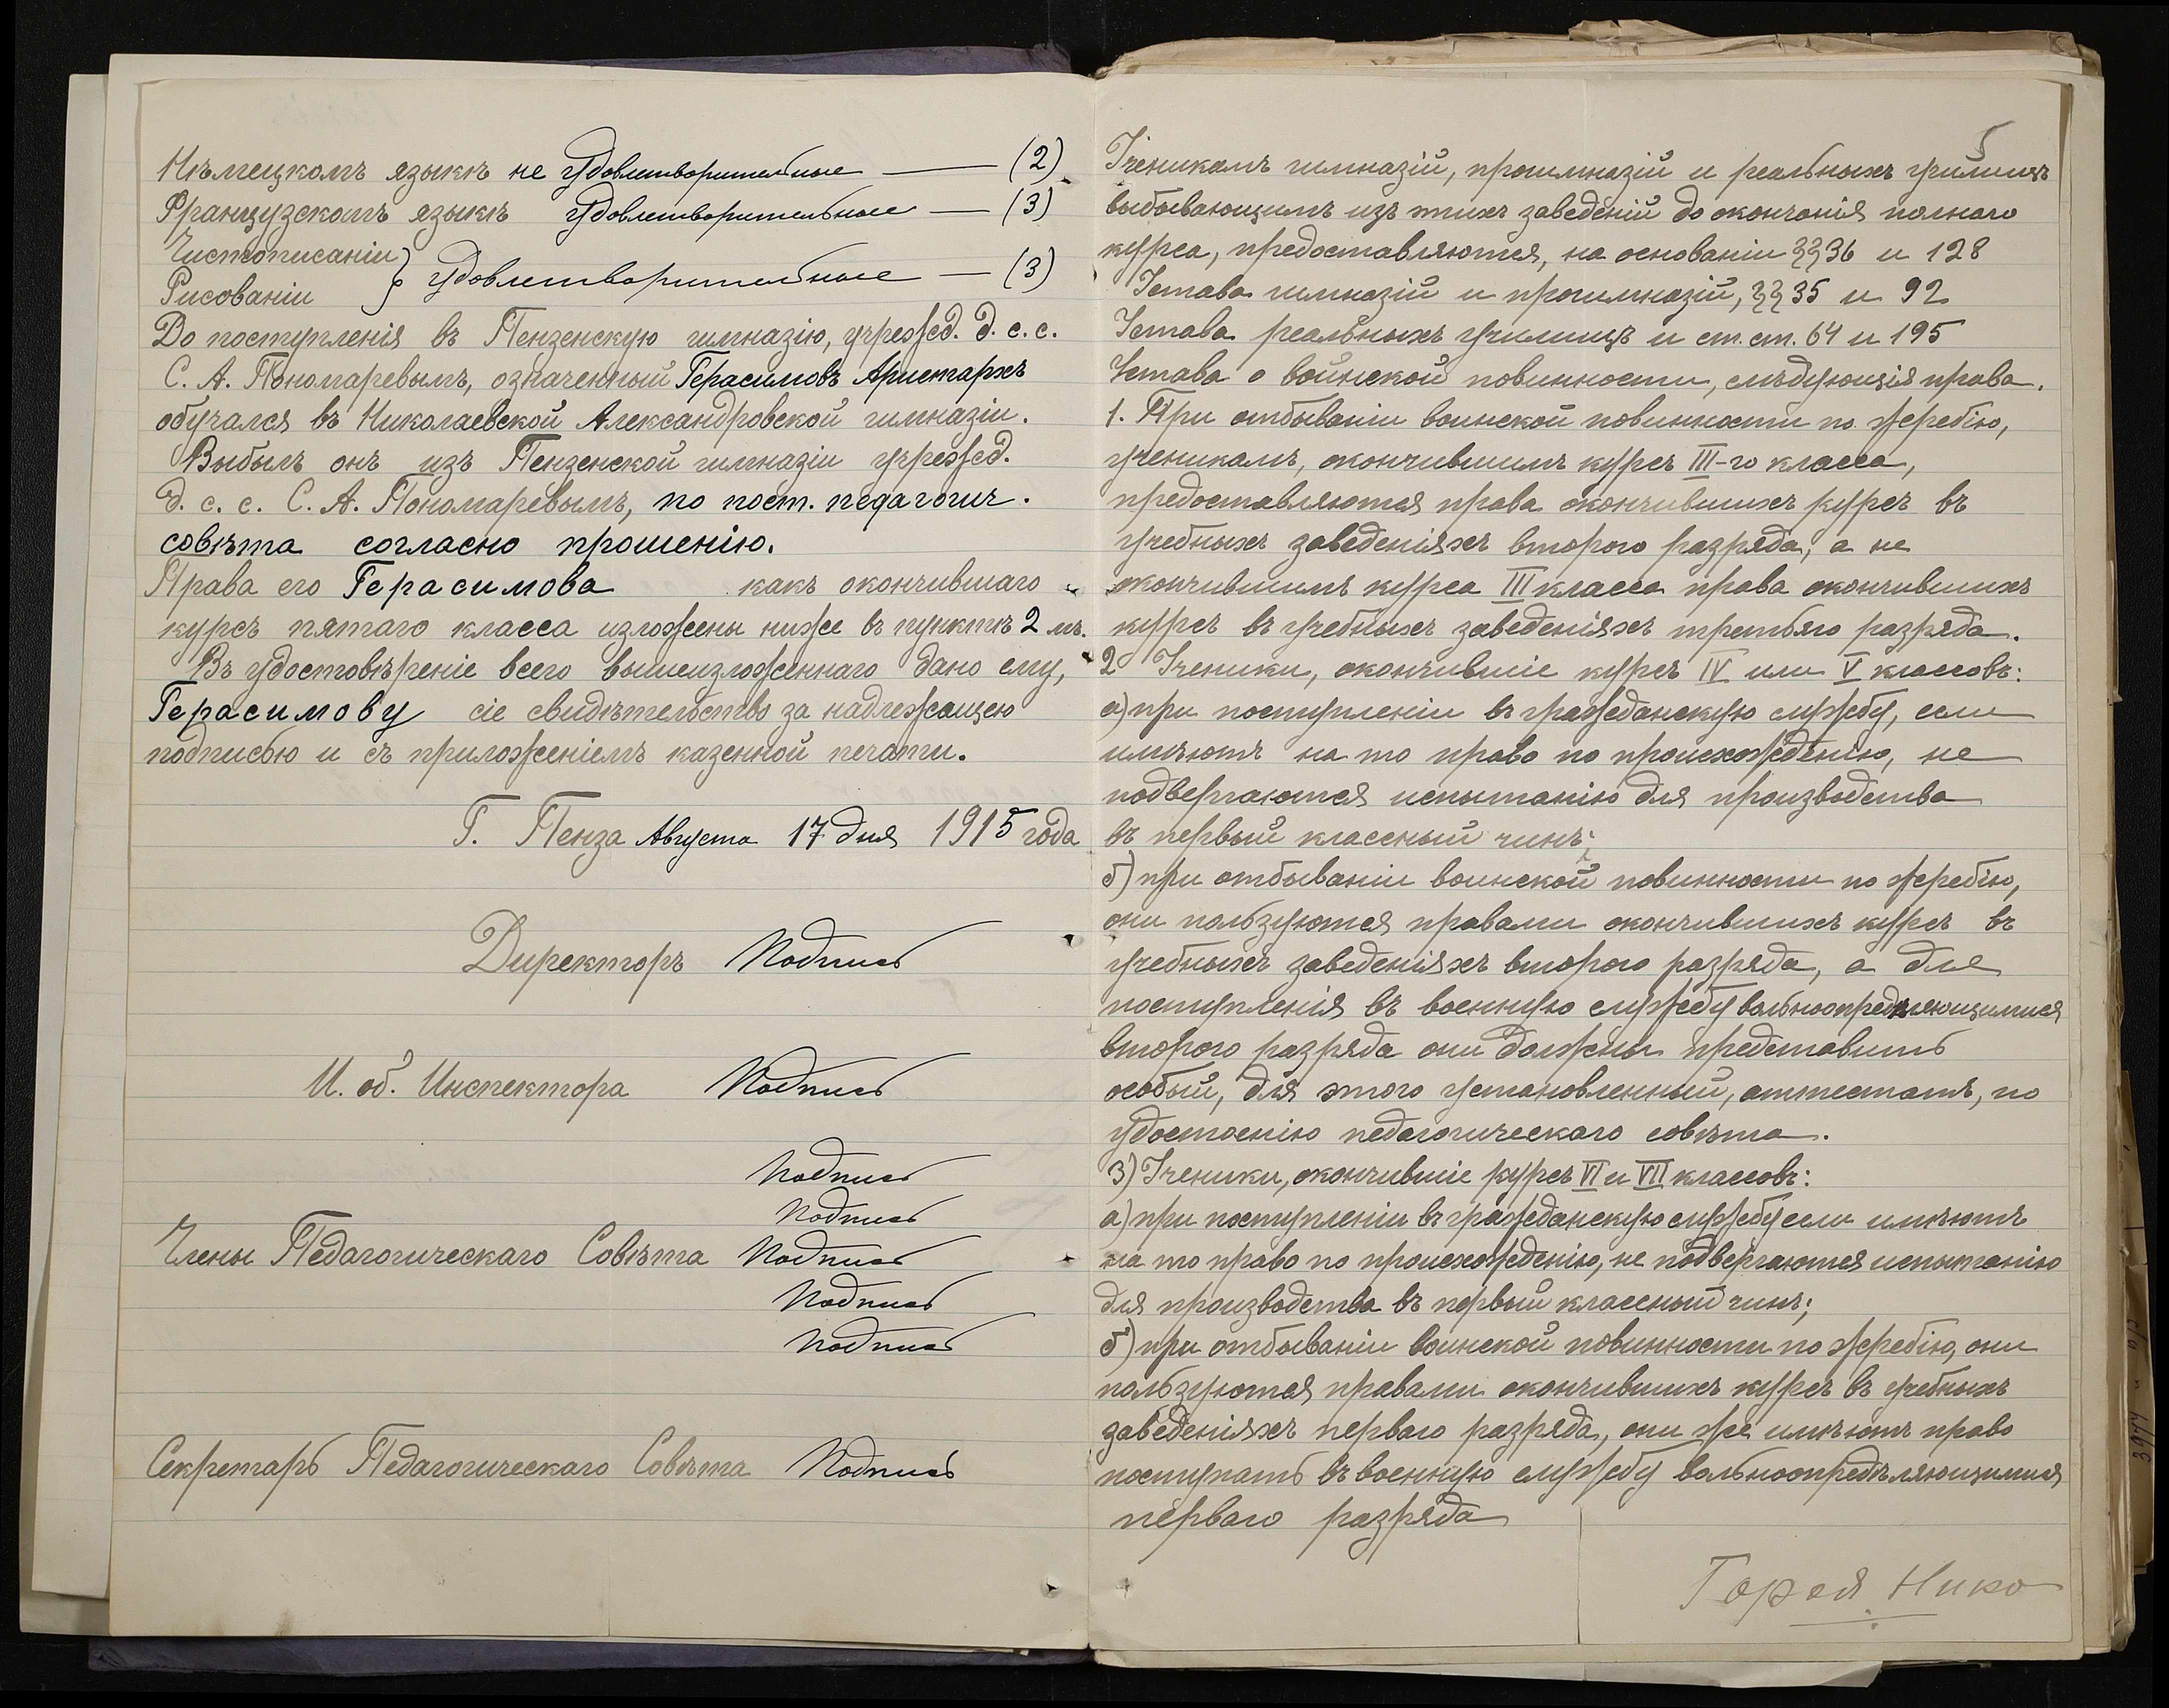 Нѣмецкомъ языкѣ не удовлетворительные — (2)
Французскомъ языкѣ удовлетворительные — (3)
Чистописаніи
Рисованіи } удовлетворительные — (3)
До поступленія въ Пензенскую гимназію, учрежд. д. с. с.
С. А. Пономаревымъ, означенный Герасимовъ Аристархъ
обучался въ Николаевской Александровской гимназіи.
Выбылъ онъ изъ Пензенской гимназіи учрежд.
д. с. с. С. А. Пономаревымъ, по пост. педагогич.
совѣта согласно прошенію.
Права его Герасимова какъ окончившаго
курсъ пятаго класса изложены ниже въ пунктѣ 2 мъ.
Въ удостовѣреніе всего вышеизложеннаго дано ему,
Герасимову сіе свидѣтельство за надлежащею
подписью и съ приложеніемъ казенной печати.
Г. Пенза Августа 17 дня 1915 года
Директоръ Подпись
И. об. Инспектора Подпись
Подпись
Подпись
Члены Педагогическаго Совѣта Подпись
Подпись
Подпись
Секретарь Педагогическаго Совѣта Подпись
5
Ученикамъ гимназій, прогимназій и реальныхъ училищъ
выбывающимъ изъ этихъ заведеній до окончанія полнаго
курса, предоставляются, на основаніи §§ 36 и 128
Устава гимназій и прогимназій, §§ 35 и 92
Устава реальныхъ училищъ и ст. ст. 64 и 195
Устава о воинской повинности, слѣдующія права.
1. При отбываніи воинской повинности по жребію,
ученикамъ, окончившимъ курсъ III-го класса,
предоставляются права окончившихъ курсъ въ
учебныхъ заведеніяхъ второго разряда, а не
окончившимъ курса III класса права окончившихъ
курсъ въ учебныхъ заведеніяхъ третьяго разряда.
2 Ученики, окончившіе курсъ IV или V классовъ:
а) при поступленіи въ гражданскую службу, если
имѣютъ на то право по происхожденію, не
подвергаются испытанію для производства
въ первый классный чинъ;
б) при отбываніи воинской повинности по жребію,
они пользуются правами окончившихъ курсъ въ
учебныхъ заведеніяхъ второго разряда, а для
поступленія въ военную службу вольноопредѣляющимися
второго разряда они должны представить
особый, для этого установленный, аттестатъ, по
удостоенію педагогическаго совѣта.
3) Ученики, окончившіе курсъ VI и VII классовъ:
а) при поступленіи въ гражданскую службу если имѣютъ
на то право по происхожденію, не подвергаются испытанію
для производства въ первый классный чинъ;
б) при отбываніи воинской повинности по жребію, они
пользуются правами окончившихъ курсъ въ учебныхъ
заведеніяхъ перваго разряда, они же имѣютъ право
поступать въ военную службу вольноопредѣляющимися
перваго разряда
Нико